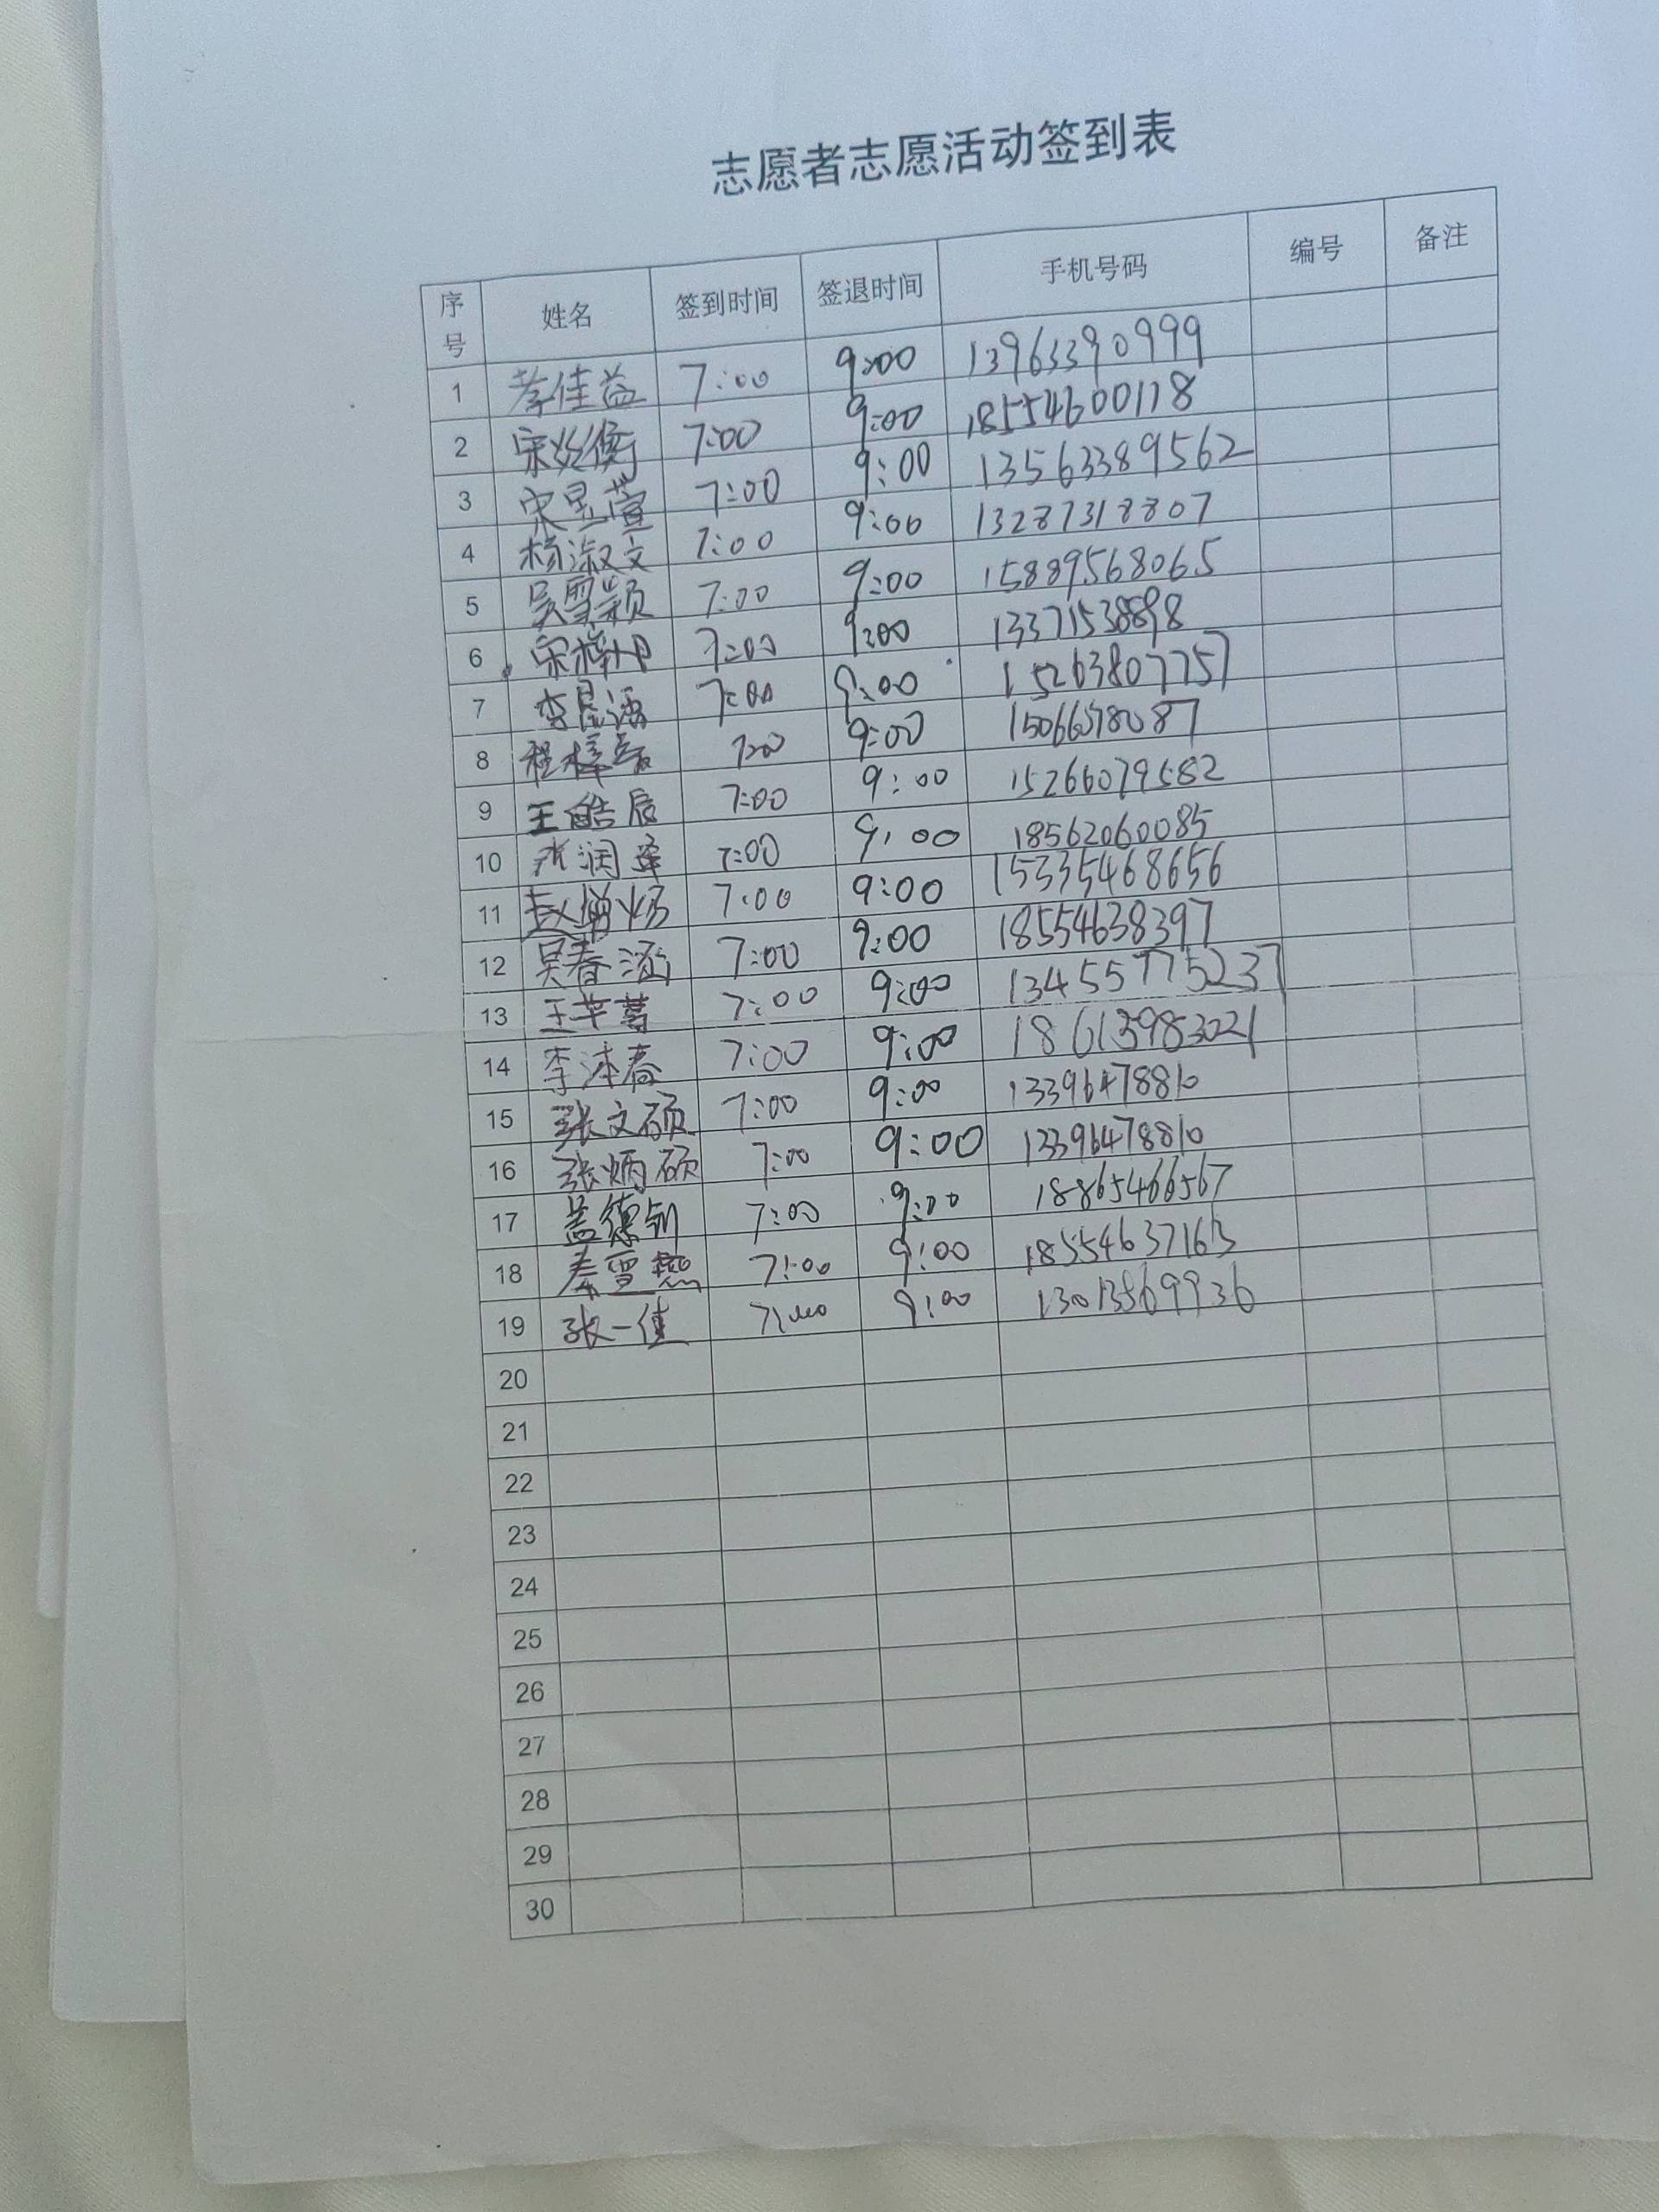 志愿者志愿活动签到表
序号 姓名 签到时间 签退时间 手机号码 编号 备注
1 李佳益 7:00 9:00 13963390999
2 宋 衡 7:00 9:00 18554600118
3 宋昱萱 7:00 9:00 13563389562
4 杨淑文 7:00 9:00 13287318807
5 吴雪颖 7:00 9:00 15889568065
6 宋梓 7:00 9:00 13371538898
7 李星语 7:00 9:00 15263807757
8 程梓 7:00 9:00
9 王皓辰 7:00 9:00 15266079582
10 润泽 7:00 9:00 18562060085
11 赵增炀 7:00 9:00 15335468656
12 吴春涵 7:00 9:00 18554638397
13 王芊蓦 7:00 9:00 13455775237
14 李沣春 7:00 9:00 18613983021
15 张文硕 7:00 9:00 13396478810
16 张炳硕 7:00 9:00 13396478810
17 盖德钊 7:00 9:00 18865466567
18 秦雪燕 7:00 9:00 18554637163
19 张一佳 7:00 9:00 13013569936
20
21
22
23
24
25
26
27
28
29
30